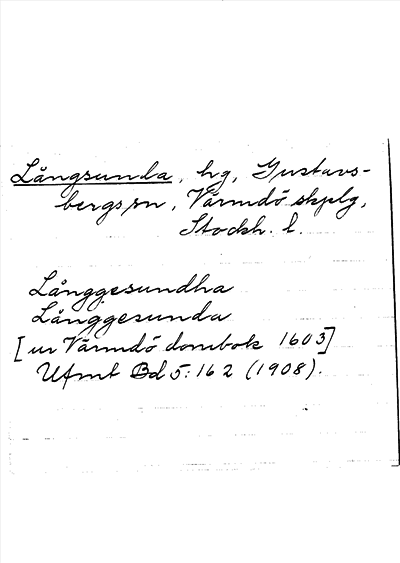 Långsunda, hg, Gustavs-
bergs sn, Värmdö skplg,
Stockh. l.
Långgesundha
Långgesunda
[ur Värmdö dombok 1603]
Ufmt Bd 5: 162 (1908).